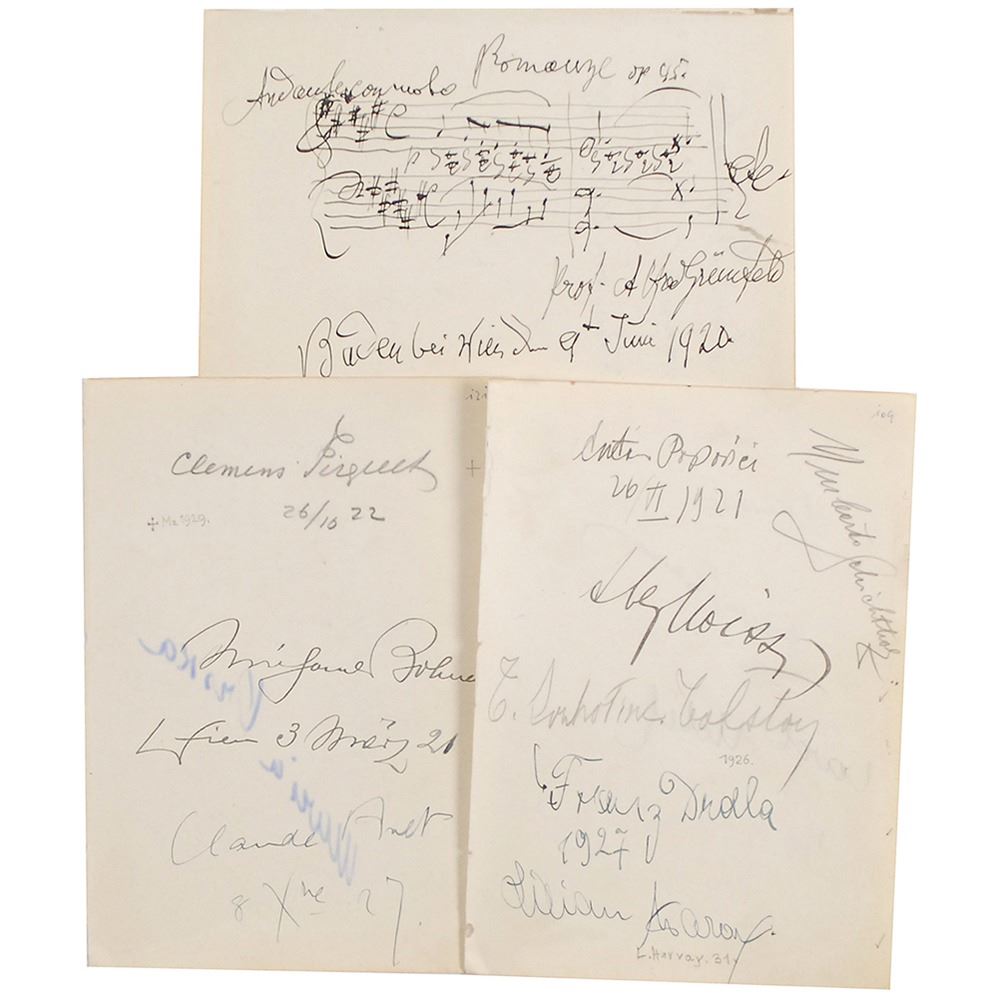 Romanze op 45.
Andante con moto
etc.
Prof. Alfred Grünfeld
Baden bei Wien den 9t Juni 1920
121
Clemens Pirquet
26/10 22
+ Mz 1929.
Wien 3 März 21
Claude Anet
8 Xbre 27.
109
26/II 1921
T. Souhotine Tolstoy
1926.
Franz Drdla
1927
Lilian Harvey
L. Harvay. 31.